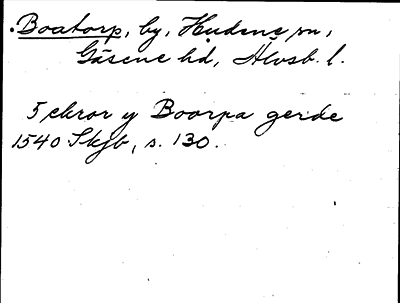 Boatorp, by, Hudene sn,
Gäsene hd, Älvsb. l.
5 ekror y Boorpa gerde
1540 Skjb, s. 130.